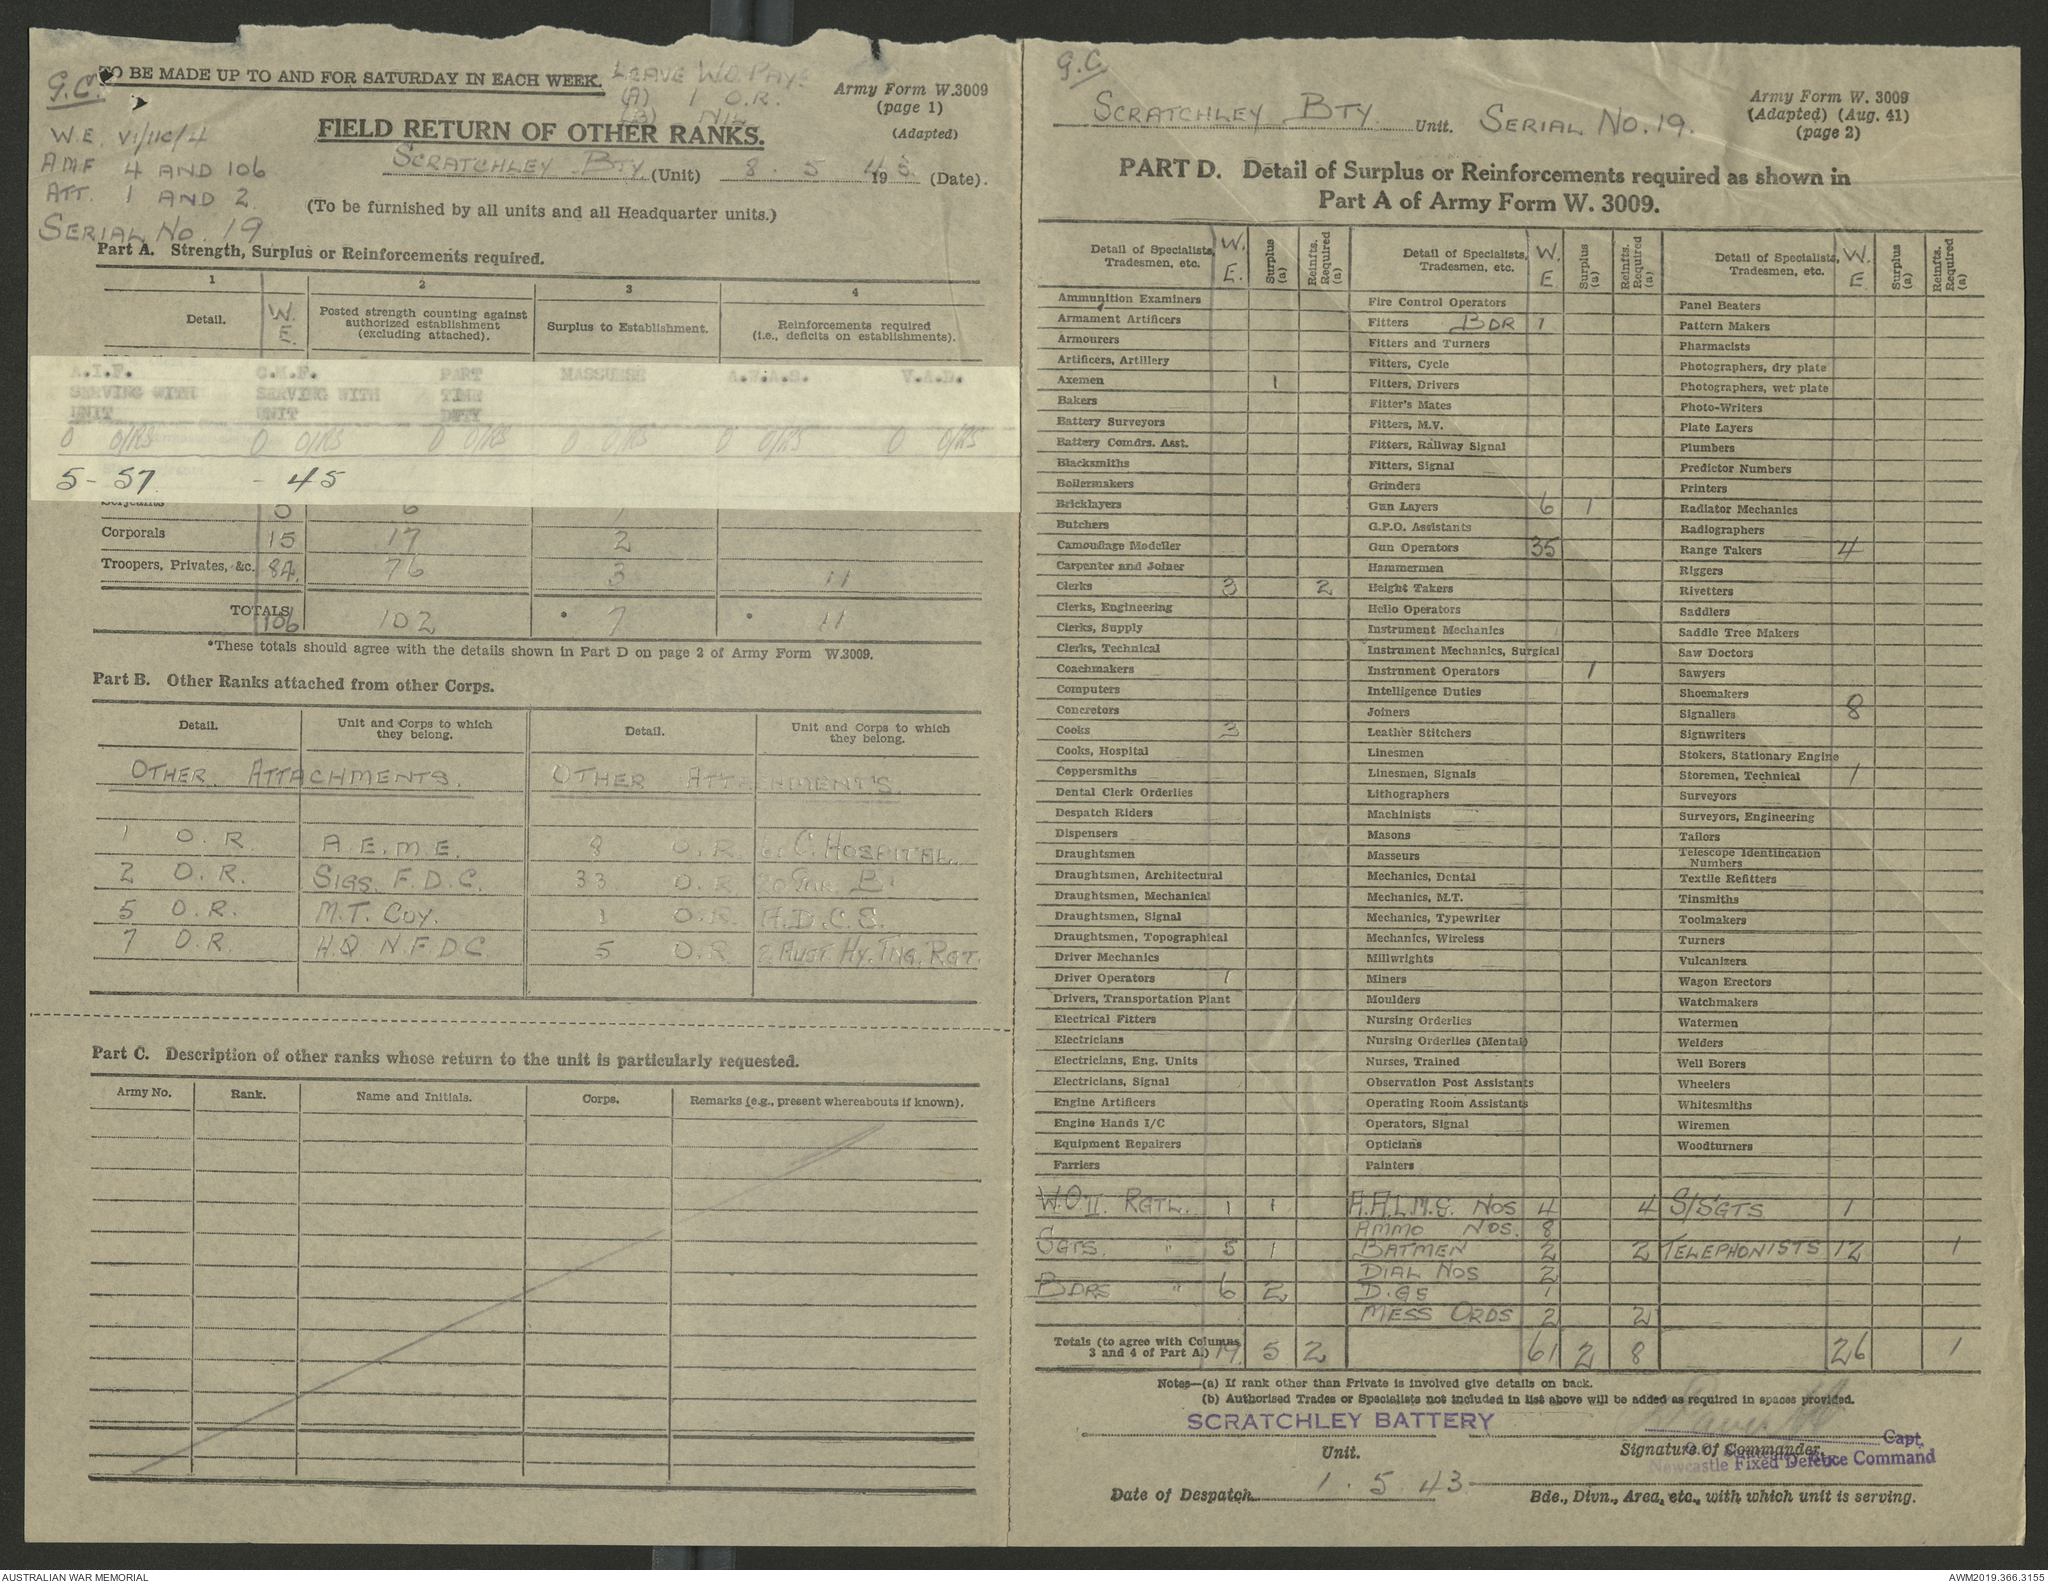 G.C.
TO BE MADE UP TO AND FOR SATURDAY IN EACH WEEK.
LEAVE W.O. PAY.
(A) 1 O.R.
(B) NIL
Army Form W.3009
(page 1)
(Adapted)
W.E. VI/11C/4
AMF 4 AND 106
ATT. 1 AND 2.
SERIAL No. 19
FIELD RETURN OF OTHER RANKS.
SCRATCHLEY BTY. (Unit) 8 . 5 1943. (Date).
(To be furnished by all units and all Headquarter units.)
Part A. Strength, Surplus or Reinforcements required.
1 2 3 4
Detail. W.E. Posted strength counting against authorized establishment (excluding attached). Surplus to Establishment. Reinforcements required (i.e., deficits on establishments).
A.I.F. SERVING WITH UNIT C.M.F. SERVING WITH UNIT PART TIME DUTY MASSUESE A.W.A.S. V.A.D.
O O/RS O O/RS O O/RS O O/RS O O/RS O O/RS
5 - 57 - 45
Serjeants 5 6 1
Corporals 15 17 2
Troopers, Privates, &c. 84 76 3 11
TOTALS 106 102 * 7 * 11
*These totals should agree with the details shown in Part D on page 2 of Army Form W.3009.
Part B. Other Ranks attached from other Corps.
Detail. Unit and Corps to which they belong. Detail. Unit and Corps to which they belong.
OTHER ATTACHMENTS. OTHER ATTACHMENTS.
1 O.R. A.E.M.E. 8 O.R. C. HOSPITAL.
2 O.R. SIGS. F.D.C. 33 O.R. 20 GAR. B
5 O.R. M.T. COY. 1 O.R. A.D.C.S.
7 O.R. H.Q N.F.D.C. 5 O.R. 2 AUST. HY. TNG. RGT.
Part C. Description of other ranks whose return to the unit is particularly requested.
Army No. Rank. Name and Initials. Corps. Remarks (e.g., present whereabouts if known).
G.C
SCRATCHLEY BTY. Unit. SERIAL No. 19.
Army Form W. 3009
(Adapted) (Aug. 41)
(page 2)
PART D. Detail of Surplus or Reinforcements required as shown in
Part A of Army Form W. 3009.
Detail of Specialists, Tradesmen, etc. W.E. Surplus (a) Reinfts. Required (a)
Ammunition Examiners
Armament Artificers
Armourers
Artificers, Artillery
Axemen 1
Bakers
Battery Surveyors
Battery Comdrs. Asst.
Blacksmiths
Boilermakers
Bricklayers
Butchers
Camouflage Modeller
Carpenter and Joiner
Clerks 3 2
Clerks, Engineering
Clerks, Supply
Clerks, Technical
Coachmakers
Computers
Concretors
Cooks 3
Cooks, Hospital
Coppersmiths
Dental Clerk Orderlies
Despatch Riders
Dispensers
Draughtsmen
Draughtsmen, Architectural
Draughtsmen, Mechanical
Draughtsmen, Signal
Draughtsmen, Topographical
Driver Mechanics
Driver Operators 1
Drivers, Transportation Plant
Electrical Fitters
Electricians
Electricians, Eng. Units
Electricians, Signal
Engine Artificers
Engine Hands I/C
Equipment Repairers
Farriers
W.O.II. RGTL. 1 1
SGTS. " 5 1
BDRS " 6 2
Totals (to agree with Columns 3 and 4 of Part A.) 19 5 2
Detail of Specialists, Tradesmen, etc. W.E Surplus (a) Reinfts. Required (a)
Fire Control Operators
Fitters BDR 1
Fitters and Turners
Fitters, Cycle
Fitters, Drivers
Fitter's Mates
Fitters, M.V.
Fitters, Railway Signal
Fitters, Signal
Grinders
Gun Layers 6 1
G.P.O. Assistants
Gun Operators 35
Hammermen
Height Takers
Hello Operators
Instrument Mechanics
Instrument Mechanics, Surgical
Instrument Operators 1
Intelligence Duties
Joiners
Leather Stitchers
Linesmen
Linesmen, Signals
Lithographers
Machinists
Masons
Masseurs
Mechanics, Dental
Mechanics, M.T.
Mechanics, Typewriter
Mechanics, Wireless
Millwrights
Miners
Moulders
Nursing Orderlies
Nursing Orderlies (Mental)
Nurses, Trained
Observation Post Assistants
Operating Room Assistants
Operators, Signal
Opticians
Painters
A.A.L.M.G. NOS 4 4
AMMO NOS. 8
BATMEN 2 2
DIAL NOS 2
D.GS 1
MESS ORDS 2 2
61 2 8
Detail of Specialists, Tradesmen, etc. W.E. Surplus (a) Reinfts. Required (a)
Panel Beaters
Pattern Makers
Pharmacists
Photographers, dry plate
Photographers, wet plate
Photo-Writers
Plate Layers
Plumbers
Predictor Numbers
Printers
Radiator Mechanics
Radiographers
Range Takers 4
Riggers
Rivetters
Saddlers
Saddle Tree Makers
Saw Doctors
Sawyers
Shoemakers
Signallers 8
Signwriters
Stokers, Stationary Engine
Storemen, Technical 1
Surveyors
Surveyors, Engineering
Tailors
Telescope Identification Numbers
Textile Refitters
Tinsmiths
Toolmakers
Turners
Vulcanizers
Wagon Erectors
Watchmakers
Watermen
Welders
Well Borers
Wheelers
Whitesmiths
Wiremen
Woodturners
S/SGTS 1
TELEPHONISTS 12 1
26 1
Notes—(a) If rank other than Private is involved give details on back.
(b) Authorised Trades or Specialists not included in list above will be added as required in spaces provided.
SCRATCHLEY BATTERY
Unit.
Capt.
Signature of Commander
Newcastle Fixed Defence Command
Date of Despatch 1 . 5 . 43
Bde., Divn., Area, etc., with which unit is serving.
AUSTRALIAN WAR MEMORIAL
AWM2019.366.3155